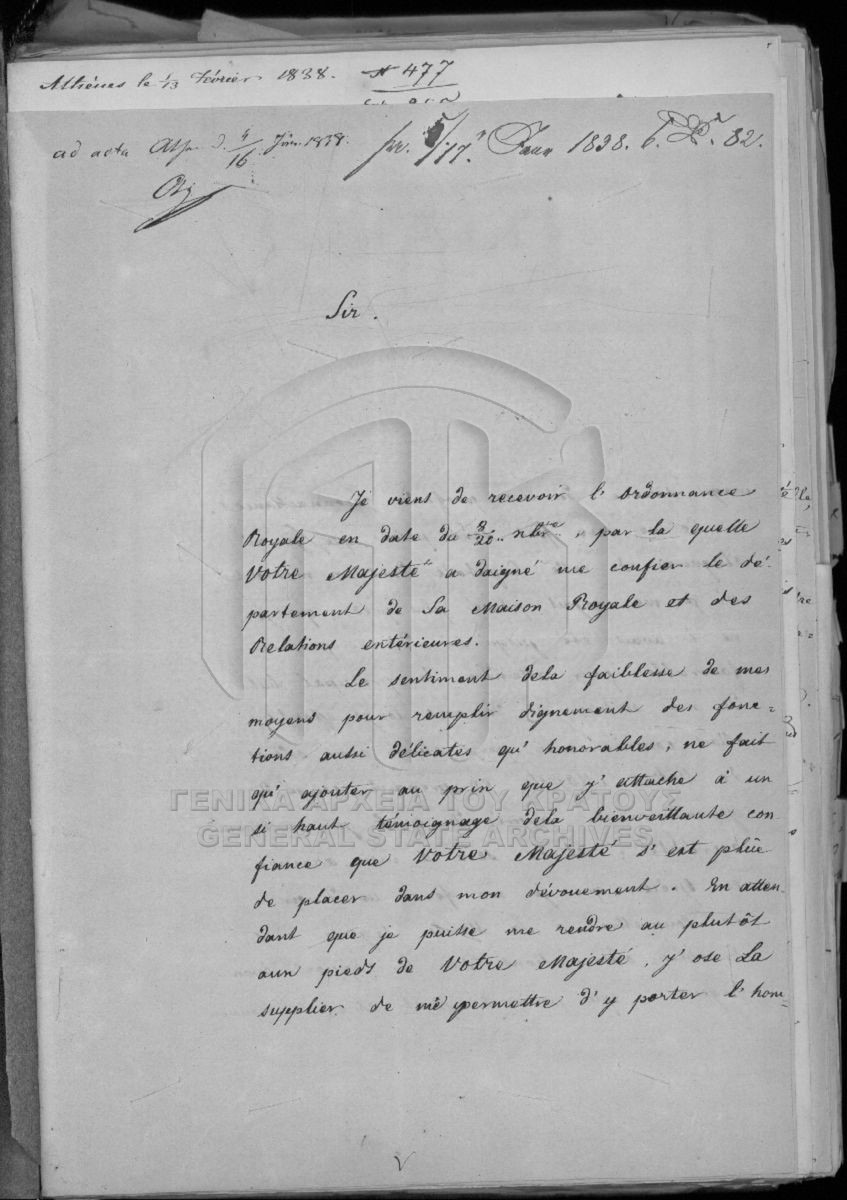 Athénes le 1/13 Février 1838. N 477
ad acta Ath. d. 4/16 Jän. 1838. pr. 5/17 Jan 1838. 82.
Sir.
Je viens de recevoir l'ordonnance
Royale en date du 8/20 xbre, par la quelle
Votre Majesté a daigné me confier le dé-
partement de Sa Maison Royale et des
Relations extérieures.
Le sentiment dela faiblesse de mes
moyens pour remplir dignement des fonc=
tions aussi délicates qu'honorables, ne fait
qu'ajouter au prix que j'attache à un
si haut témoignage dela bienveillante con
fiance que Votre Majesté s'est plûe
de placer dans mon dévouement. En atten-
dant que je puisse me rendre au plutôt
aux pieds de Votre Majesté, j'ose La
supplier de me permettre d'y porter l'hom-
ΓΕΝΙΚΑ ΑΡΧΕΙΑ ΤΟΥ ΚΡΑΤΟΥΣ
GENERAL STATE ARCHIVES